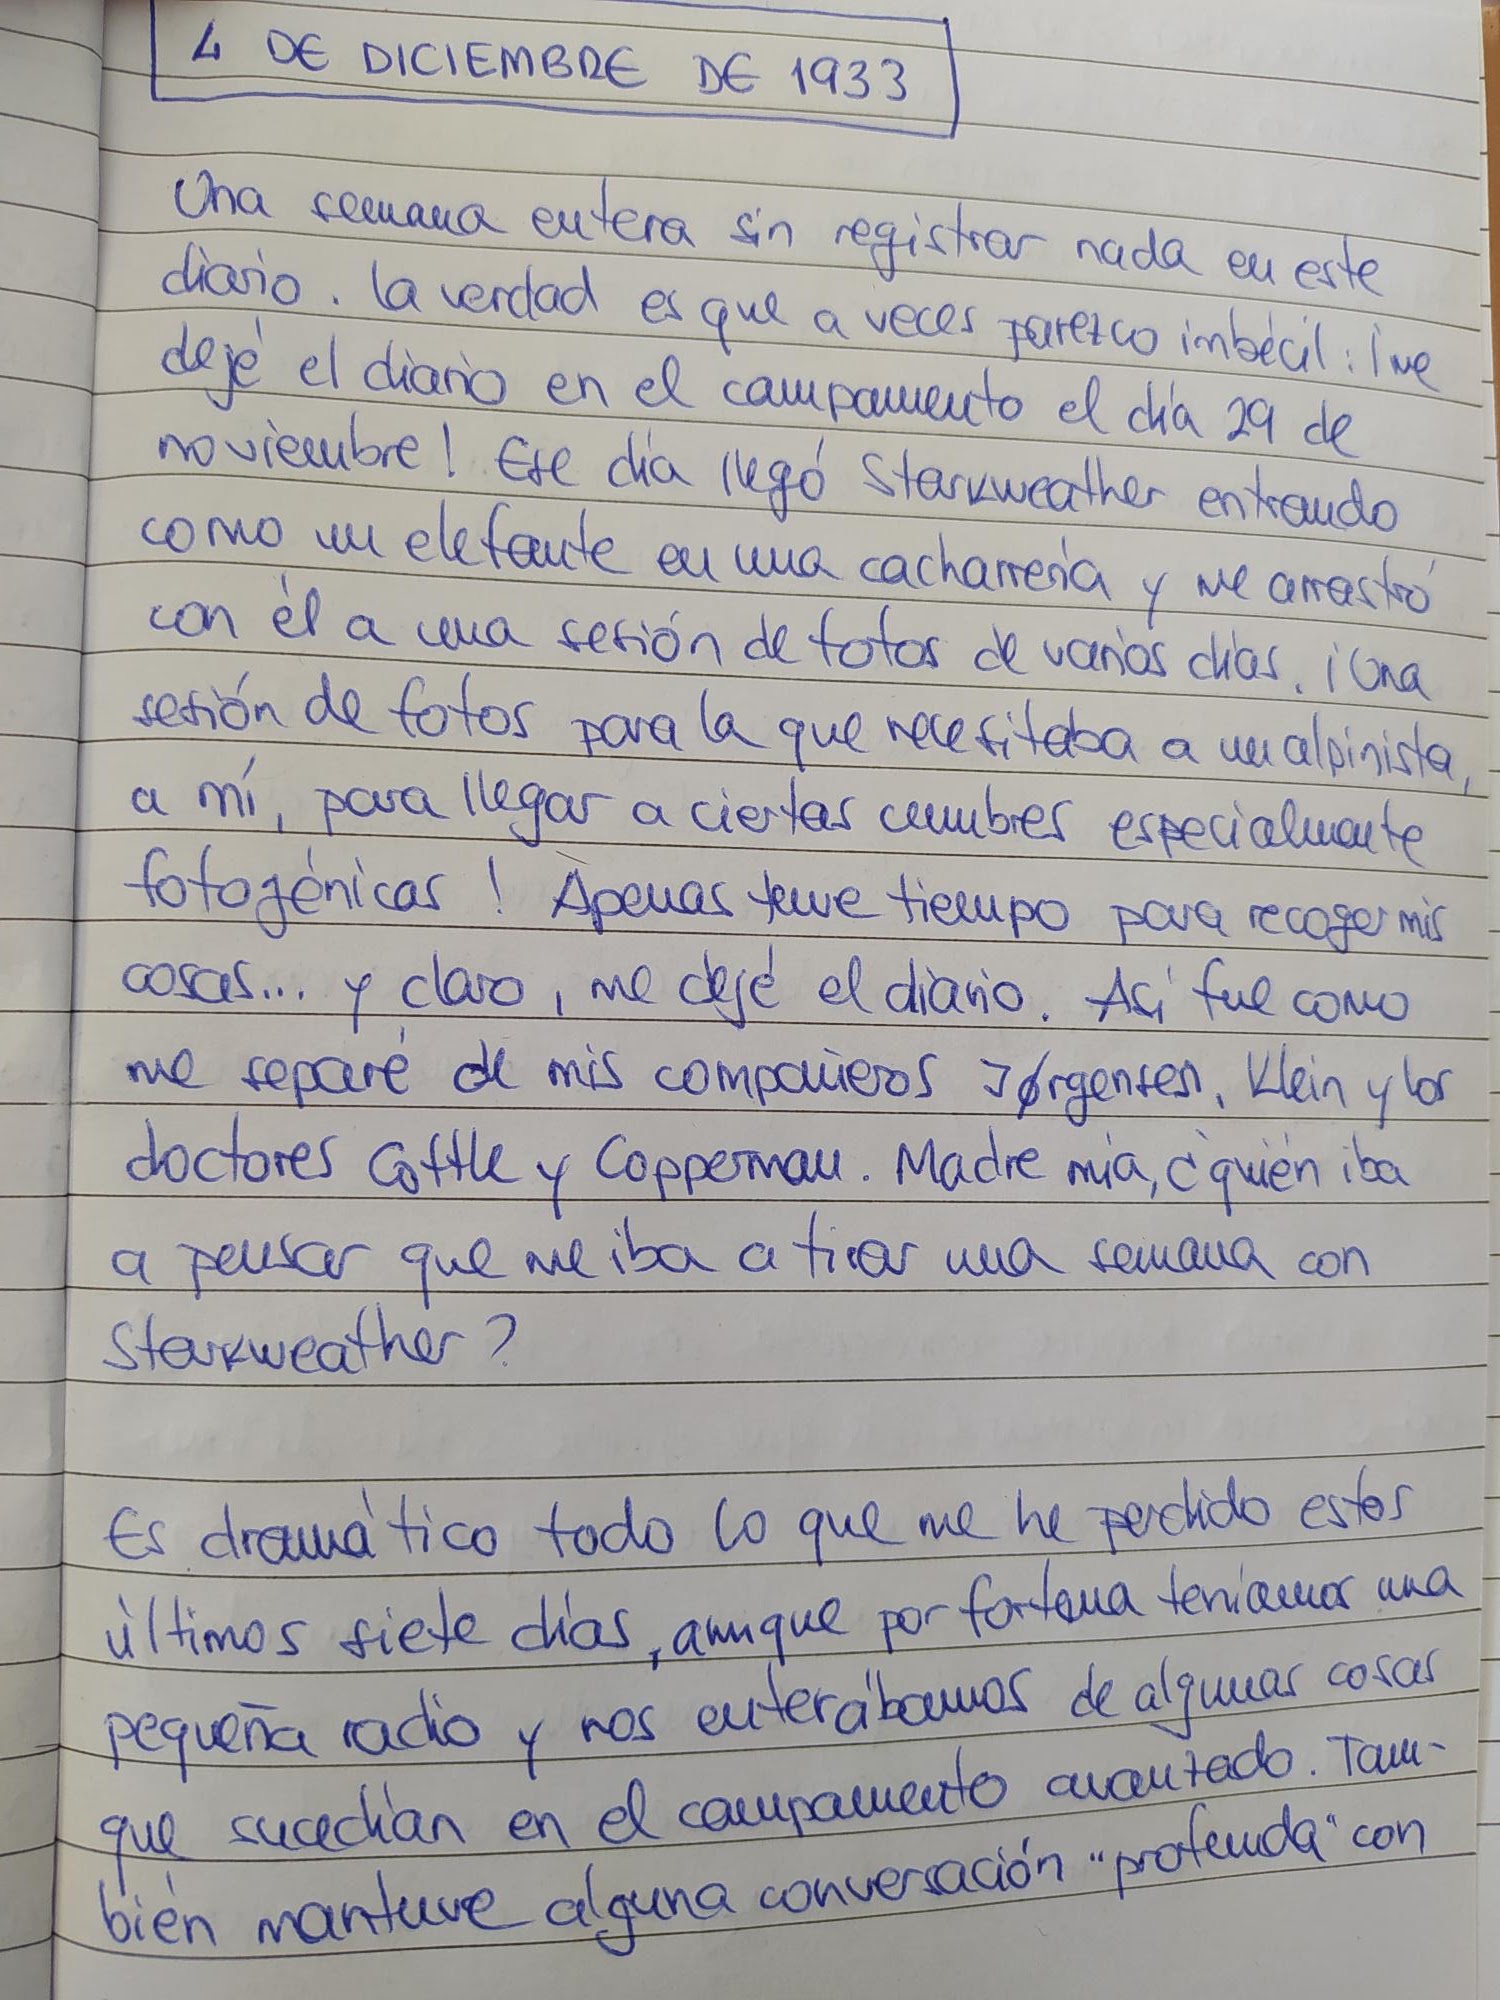 4 DE DICIEMBRE DE 1933
Una semana entera sin registrar nada en este
diario. La verdad es que a veces parezco imbécil: ¡me
dejé el diario en el campamento el día 29 de
noviembre! Ese día llegó Starkweather entrando
como un elefante en una cacharrería y me arrastró
con él a una sesión de fotos de varios días. ¡Una
sesión de fotos para la que necesitaba a un alpinista,
a mí, para llegar a ciertas cumbres especialmente
fotogénicas! Apenas tuve tiempo para recoger mis
cosas... y claro, me dejé el diario. Así fue como
me separé de mis compañeros Jørgensen, Klein y los
doctores Cottle y Copperman. Madre mía, ¿quién iba
a pensar que me iba a tirar una semana con
Starkweather?
Es dramático todo lo que me he perdido estos
últimos siete días, aunque por fortuna teníamos una
pequeña radio y nos enterábamos de algunas cosas
que sucedían en el campamento avanzado. Tam-
bién mantuve alguna conversación "profunda" con